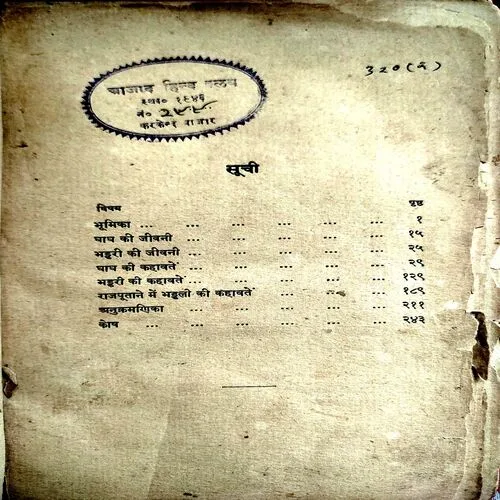 ३२० (८)
आजाद हिन्द क्लब
स्था० १९४६
नं० २५५
बाजार
सूची
विषय पृष्ठ
भूमिका ... ... ... ... ... ... १
घाघ की जीवनी ... ... ... ... ... १५
भड्डरी की जीवनी ... ... ... ... ... २५
घाघ की कहावतें ... ... ... ... ... २९
भड्डरी की कहावतें ... ... ... ... ... १२९
राजपूताने में भड्डली की कहावतें ... ... ... ... १८९
अनुक्रमणिका ... ... ... ... ... २११
कोष ... ... ... ... ... ... २४३